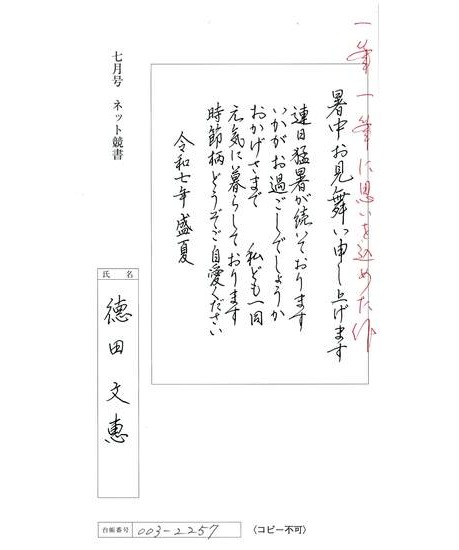 一筆一筆に思いを込めた作
暑中お見舞い申し上げます
連日猛暑が続いております
いかがお過ごしでしょうか
おかげさまで 私ども一同
元気に暮らしております
時節柄どうぞご自愛ください
令和七年 盛夏
七月号 ネット競書
氏名
德田文惠
台帳番号 003-2257
〈コピー不可〉